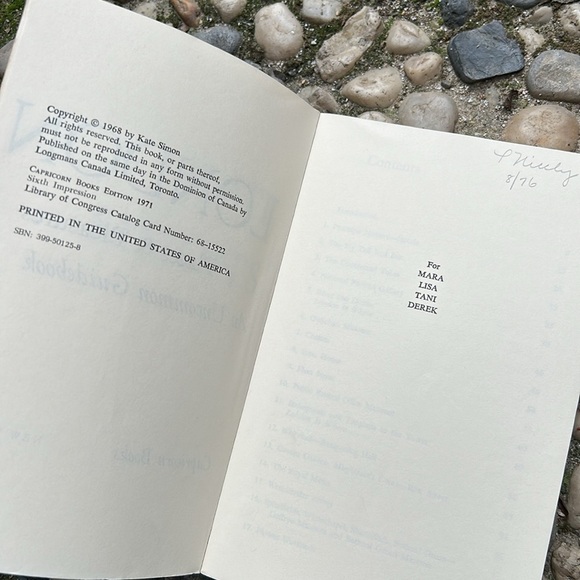 Copyright © 1968 by Kate Simon
All rights reserved. This book, or parts thereof,
must not be reproduced in any form without permission.
Published on the same day in the Dominion of Canada by
Longmans Canada Limited, Toronto.
CAPRICORN BOOKS EDITION 1971
Sixth Impression
Library of Congress Catalog Card Number: 68-15522
PRINTED IN THE UNITED STATES OF AMERICA
SBN: 399-50125-8
8/76
For
MARA
LISA
TANI
DEREK